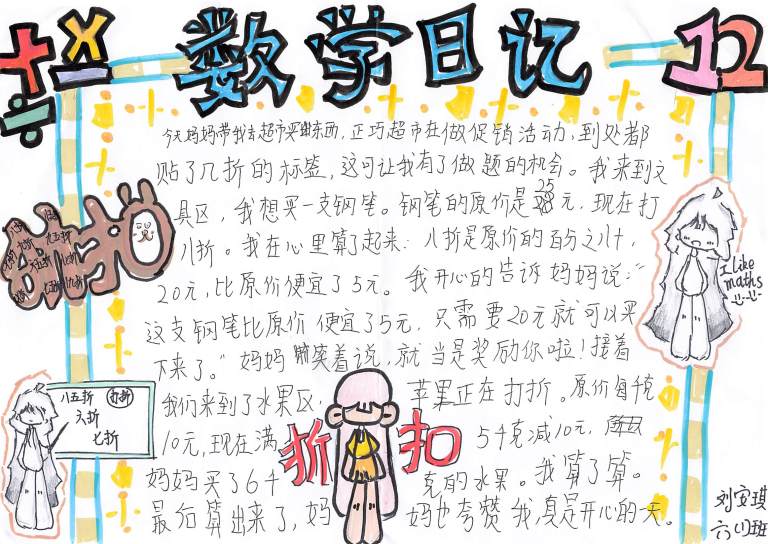 数学日记
12
今天妈妈带我去超市买东西，正巧超市在做促销活动，到处都
贴了几折的标签，这可让我有了做题的机会。我来到文
具区，我想买一支钢笔。钢笔的原价是25元，现在打
八折。我在心里算了起来：八折是原价的百分之八十，
20元，比原价便宜了5元。我开心的告诉妈妈说：“
这支钢笔比原价便宜了5元，只需要20元就可以买
下来了。”妈妈笑着说，就当是奖励你啦！接着
我们来到了水果区，苹果正在打折。原价每千克
10元，现在满5千克减10元，
妈妈买了6千克的水果。我算了算。
最后算出来了，妈妈也夸赞我，真是开心的一天。
折扣
折扣
I like
maths
八五折
打折
六折
七折
六(1)班